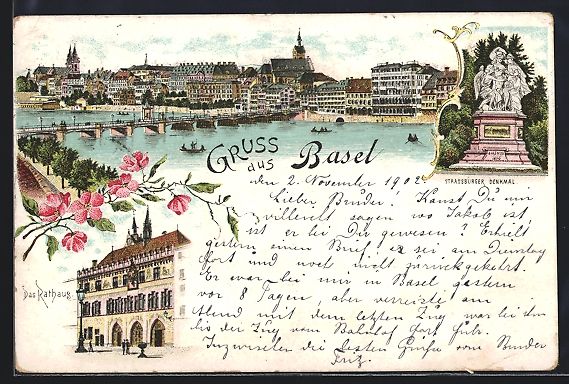 GRUSS aus Basel
STRASSBURGER DENKMAL
Das Rathaus
den 2. November 1902
Lieber Bruder! Kanst Du mir
villeucht sagen wo Jakob ist
ist er bei Dir gewesen? Erhielt
gestern einen Brief er sei am Dienstag
fort und noch nicht zurückgekehrt.
Er war bei mir in Basel gestern
vor 8 Tagen, aber verreiste am
Abend mit dem letzten Zug war bei ihm
bis der Zug vom Bahnhof fort fuhr.
Inzwischen die besten Grüße vom Bruder
Fritz.